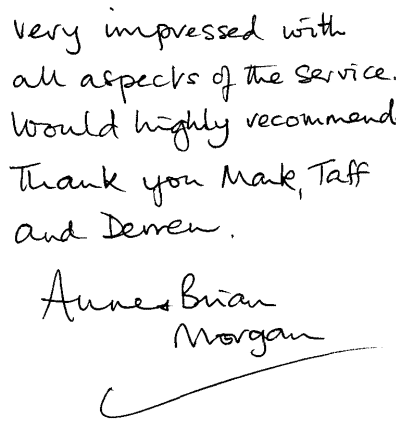 Very impressed with
all aspects of the service.
Would highly recommend
Thank you Mark, Taff
and Derren.
Anne & Brian
Morgan